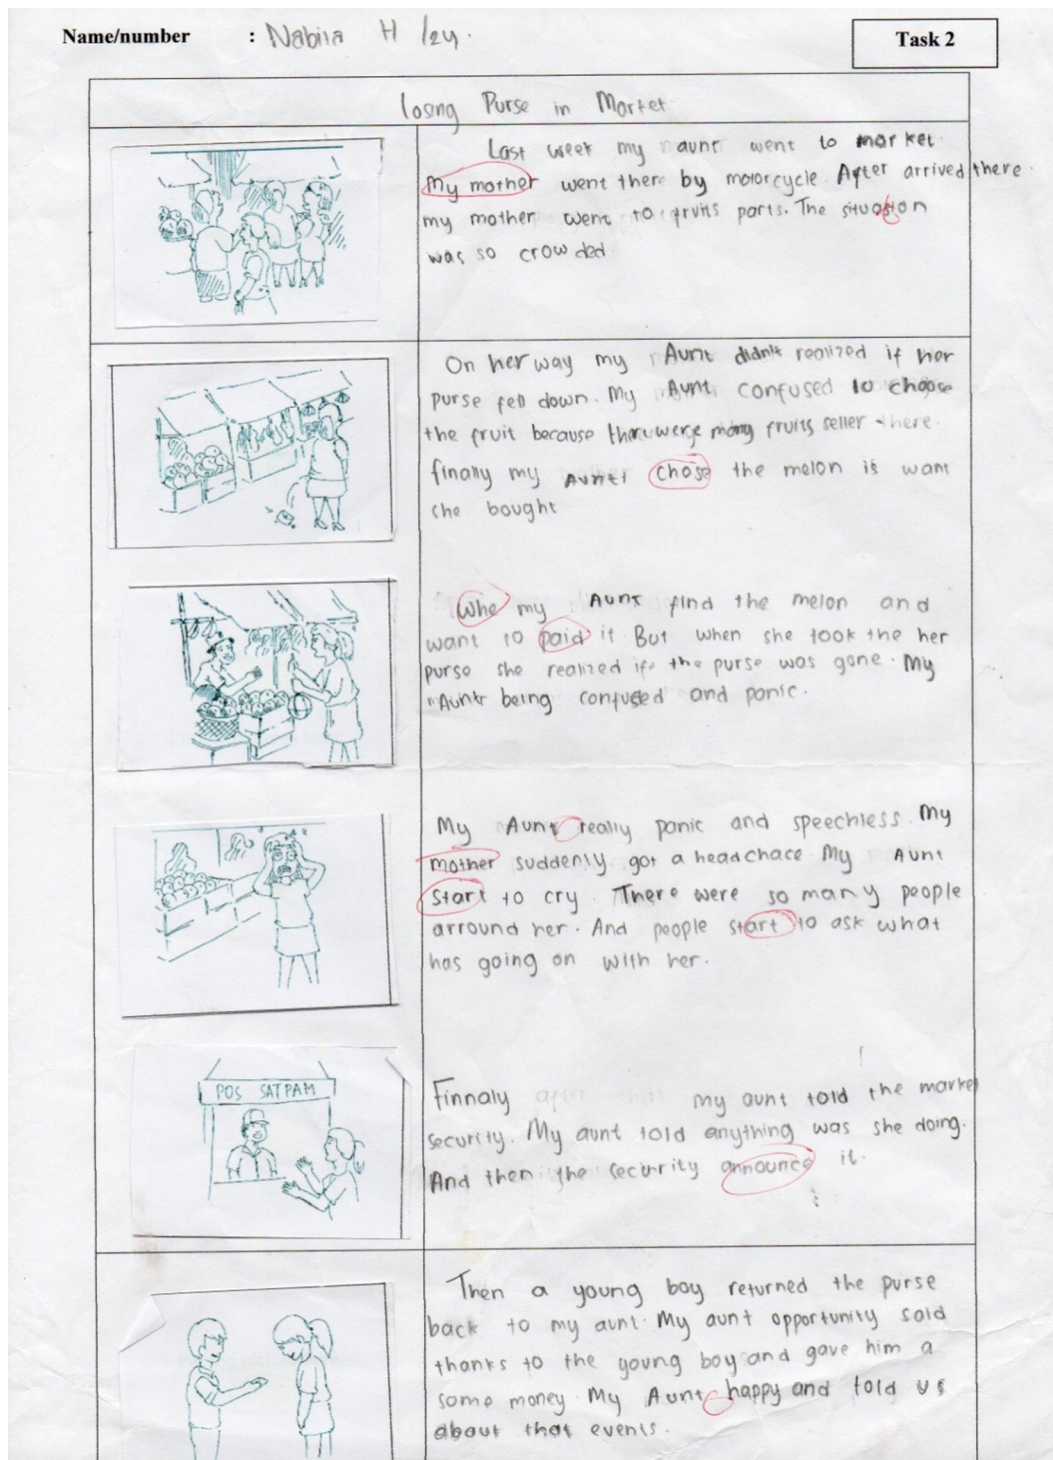 Name/number : Nabila H /24.
Task 2
losing Purse in Market
Last week my aunt went to market.
My mother went there by motorcycle. After arrived there
my mother went to fruits parts. The situasion
was so crowded.
On her way my Aunt didn't realized if her
purse fell down. My Aunt confused to choose
the fruit because there were many fruits seller there.
finally my Aunt chose the melon is want
she bought
Whe my Aunt find the melon and
want to paid it. But when she took the her
purse she realized if the purse was gone. My
Aunt being confused and panic.
My Aunt really panic and speechless. My
mother suddenly got a headchace. My Aunt
start to cry. There were so many people
arround her. And people start to ask what
has going on with her.
POS SATPAM
Finnaly my aunt told the market
security. My aunt told anything was she doing.
And then the security announce it.
Then a young boy returned the purse
back to my aunt. My aunt opportunity said
thanks to the young boy and gave him a
some money. My Aunt happy and told us
about that events.